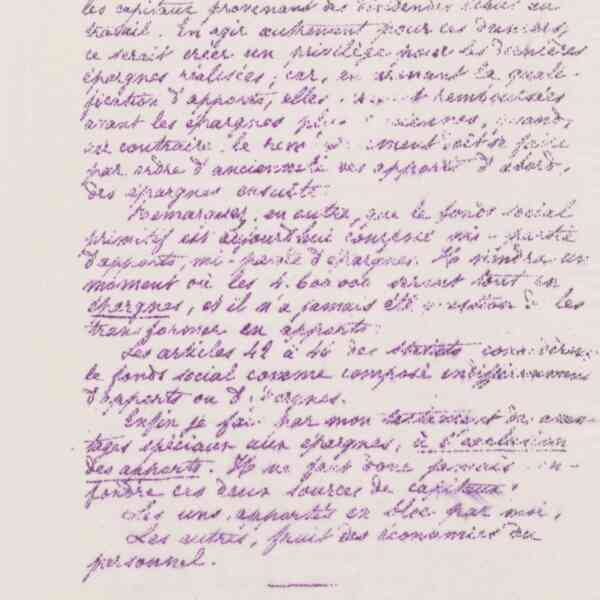 les capitaux provenant des dividendes
travail. En agir autrement pour ces derniers,
ce serait créer un privilège pour les dernières
épargnes réalisées; car, en prenant la quali-
fication d'apports, elles remboursées
avant les épargnes plus anciennes, quand,
au contraire le doit se faire
par ordre d'ancienneté des apports d'abord,
des épargnes ensuite.
Remarquez, en outre, que le fonds social
primitif est aujourd'hui mi-partie
d'apports, mi-partie d'épargnes. Il viendra un
moment où les 4.600.000 seront tout en
épargnes, et il n'a jamais été question de les
transformer en apports.
Les articles 42 à 46 des statuts considèrent
le fonds social comme composé indifféremment
d'apports ou d'épargnes.
Enfin je fais par mon testament des avan-
tages spéciaux aux épargnes, à l'exclusion
des apports. Il ne faut donc jamais con-
fondre ces deux sources de capitaux.
Les uns, apportés en bloc par moi,
Les autres, fruit des économies du
personnel.